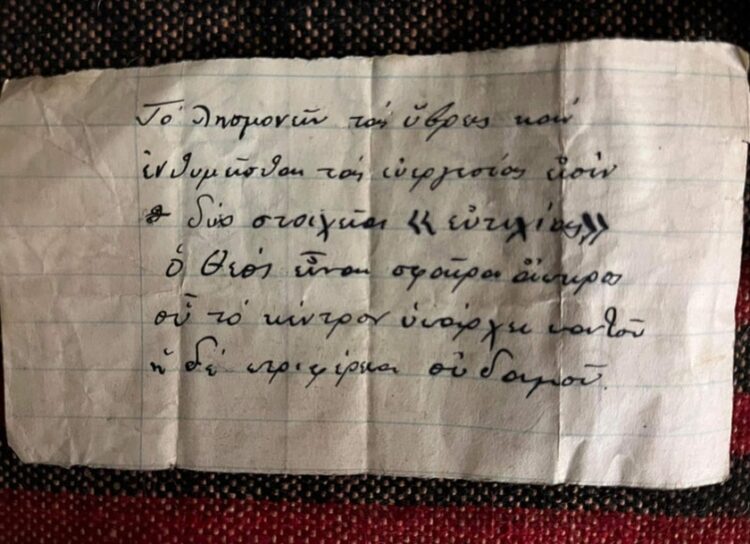 Τὸ λησμονεῖν τάς ὕβρεις καί
ἐνθυμεῖσθαι τάς εὐεργεσίας εἰσίν
δύο στοιχεῖα « εὐτυχίας »
ὁ Θεός εἶναι σφαῖρα ἄπειρος
οὗ τό κέντρον ὑπάρχει πανταοῦ
ἡ δέ περιφέρεια οὐδαμοῦ.